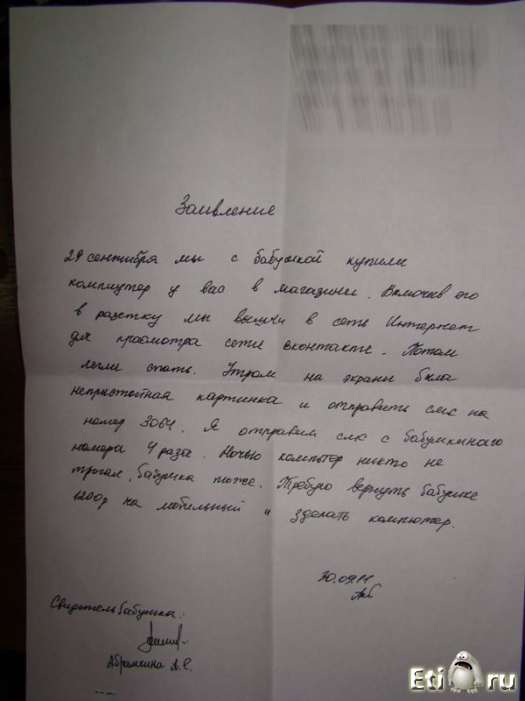 Заивление
29 сентября мы с бабушкой купили
компиутер у вас в магазини. Включив его
в разетку мы вышли в сеть Интернет
для просмотра сети вконтакте. Потом
легли спать. Утром на экраны была
непристойная картинка и отправить смс на
номер 3064. Я отправил смс с бабушкиного
номера 4 раза. Ночью компьтер никто не
трогал, бабушка тоже. Требую вернуть бабушке
1200р на мобильный и зделать компютер.
30.09.11
Свидетель бабушка:
Абрамкина А.С.
Eti ru